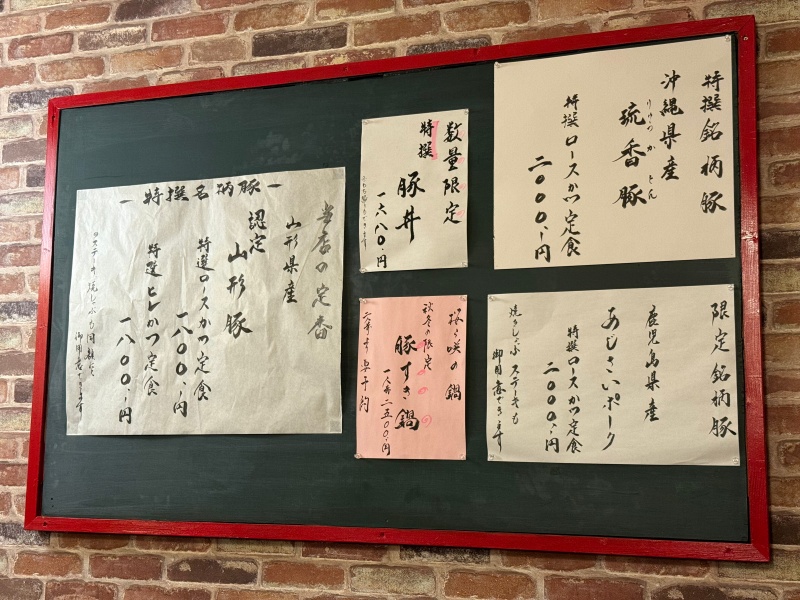 特撰銘柄豚
沖縄県産
りゅう か とん
琉香豚
特撰ロースかつ定食
二〇〇〇、円
数量限定
特撰
豚丼
一六八〇、円
限定銘柄豚
鹿児島県産
あじさいポーク
特撰ロースかつ定食
二〇〇〇、円
焼きしゃぶ ステーキも
御用意できます
秋冬の限定
豚すき鍋
一人弁二五〇〇、円
ー特撰名柄豚ー
当店の定番
山形県産
認定 山形豚
特選ロースかつ定食
一八〇〇、円
特選ヒレかつ定食
一八〇〇、円
御用意できます